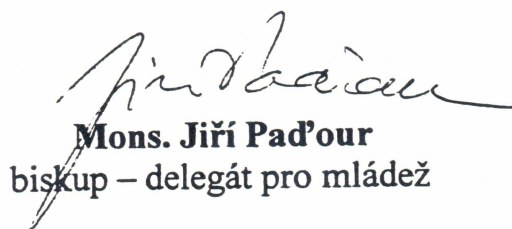 Jiří Paďour
Mons. Jiří Paďour
biskup – delegát pro mládež